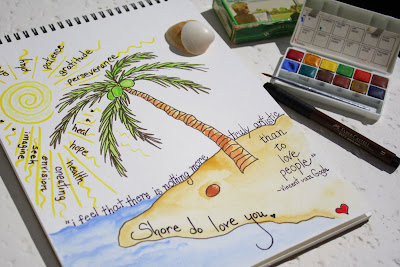 play
patience
gratitude
perseverance
imagine
seek
envision
creating
health
hope
heal
"i feel that there is nothing more truly artistic
than
to love
people"
-Vincent van Gogh
Shore do love you